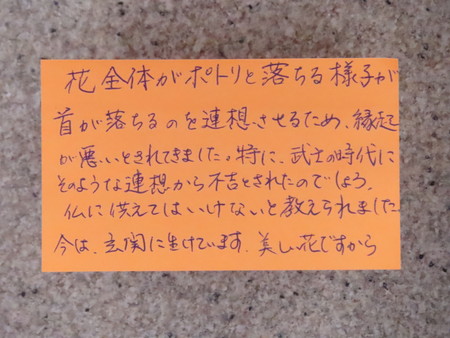 花全体がポトリと落ちる様子が
首が落ちるのを連想させるため、縁起
が悪いとされてきました。特に、武士の時代に
そのような連想から不吉とされたのでしょう。
仏に供えてはいけないと教えられました
今は、玄関に生けています。美しい花ですから